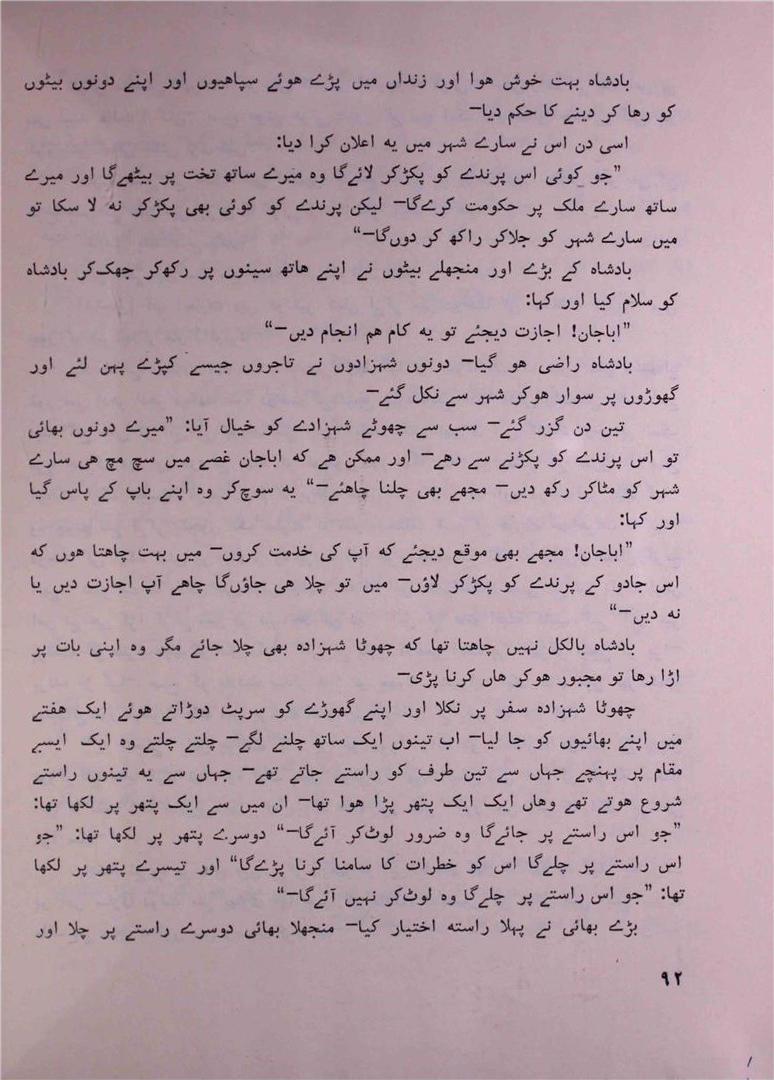 بادشاہ بہت خوش ہوا اور زنداں میں پڑے ہوئے سپاہیوں اور اپنے دونوں بیٹوں
کو رہا کر دینے کا حکم دیا—
اسی دن اس نے سارے شہر میں یہ اعلان کرا دیا:
”جو کوئی اس پرندے کو پکڑکر لائےگا وہ میرے ساتھ تخت پر بیٹھےگا اور میرے
ساتھ سارے ملک پر حکومت کرےگا— لیکن پرندے کو کوئی بھی پکڑکر نہ لا سکا تو
میں سارے شہر کو جلاکر راکھ کر دوںگا—“
بادشاہ کے بڑے اور منجھلے بیٹوں نے اپنے ہاتھ سینوں پر رکھکر جھککر بادشاہ
کو سلام کیا اور کہا:
”اباجان! اجازت دیجئے تو یہ کام ہم انجام دیں—“
بادشاہ راضی ہو گیا— دونوں شہزادوں نے تاجروں جیسے کپڑے پہن لئے اور
گھوڑوں پر سوار ہوکر شہر سے نکل گئے—
تین دن گزر گئے— سب سے چھوٹے شہزادے کو خیال آیا: ”میرے دونوں بھائی
تو اس پرندے کو پکڑنے سے رہے— اور ممکن ہے کہ اباجان غصے میں سچ مچ ہی سارے
شہر کو مٹاکر رکھ دیں— مجھے بھی چلنا چاہئے—“ یہ سوچکر وہ اپنے باپ کے پاس گیا
اور کہا:
”اباجان! مجھے بھی موقع دیجئے کہ آپ کی خدمت کروں— میں بہت چاہتا ہوں کہ
اس جادو کے پرندے کو پکڑکر لاؤں— میں تو چلا ہی جاؤںگا چاہے آپ اجازت دیں یا
نہ دیں—“
بادشاہ بالکل نہیں چاہتا تھا کہ چھوٹا شہزادہ بھی چلا جائے مگر وہ اپنی بات پر
اڑا رہا تو مجبور ہوکر ہاں کرنا پڑی—
چھوٹا شہزادہ سفر پر نکلا اور اپنے گھوڑے کو سرپٹ دوڑاتے ہوئے ایک ہفتے
میں اپنے بھائیوں کو جا لیا— اب تینوں ایک ساتھ چلنے لگے— چلتے چلتے وہ ایک ایسے
مقام پر پہنچے جہاں سے تین طرف کو راستے جاتے تھے— جہاں سے یہ تینوں راستے
شروع ہوتے تھے وہاں ایک ایک پتھر پڑا ہوا تھا— ان میں سے ایک پتھر پر لکھا تھا:
”جو اس راستے پر جائےگا وہ ضرور لوٹکر آئےگا—“ دوسرے پتھر پر لکھا تھا: ”جو
اس راستے پر چلےگا اس کو خطرات کا سامنا کرنا پڑےگا“ اور تیسرے پتھر پر لکھا
تھا: ”جو اس راستے پر چلےگا وہ لوٹکر نہیں آئےگا—“
بڑے بھائی نے پہلا راستہ اختیار کیا— منجھلا بھائی دوسرے راستے پر چلا اور
۹۲